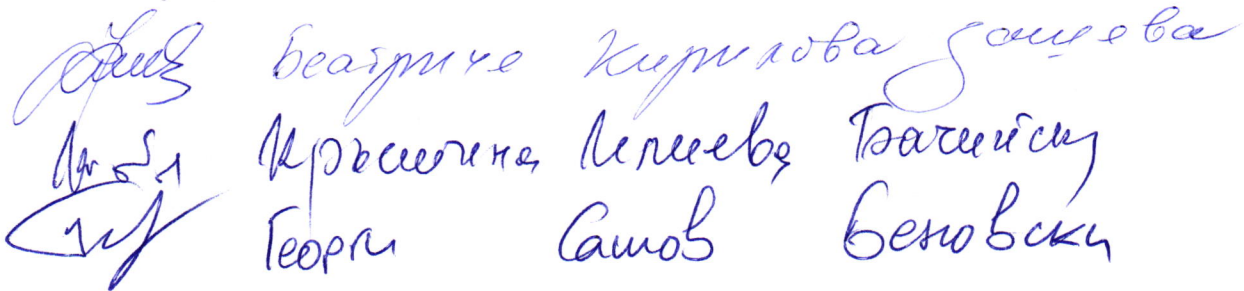 Беатриче Кирилова Зашева
Кръстина Илиева Бачийска
Георги Сашов Беновски